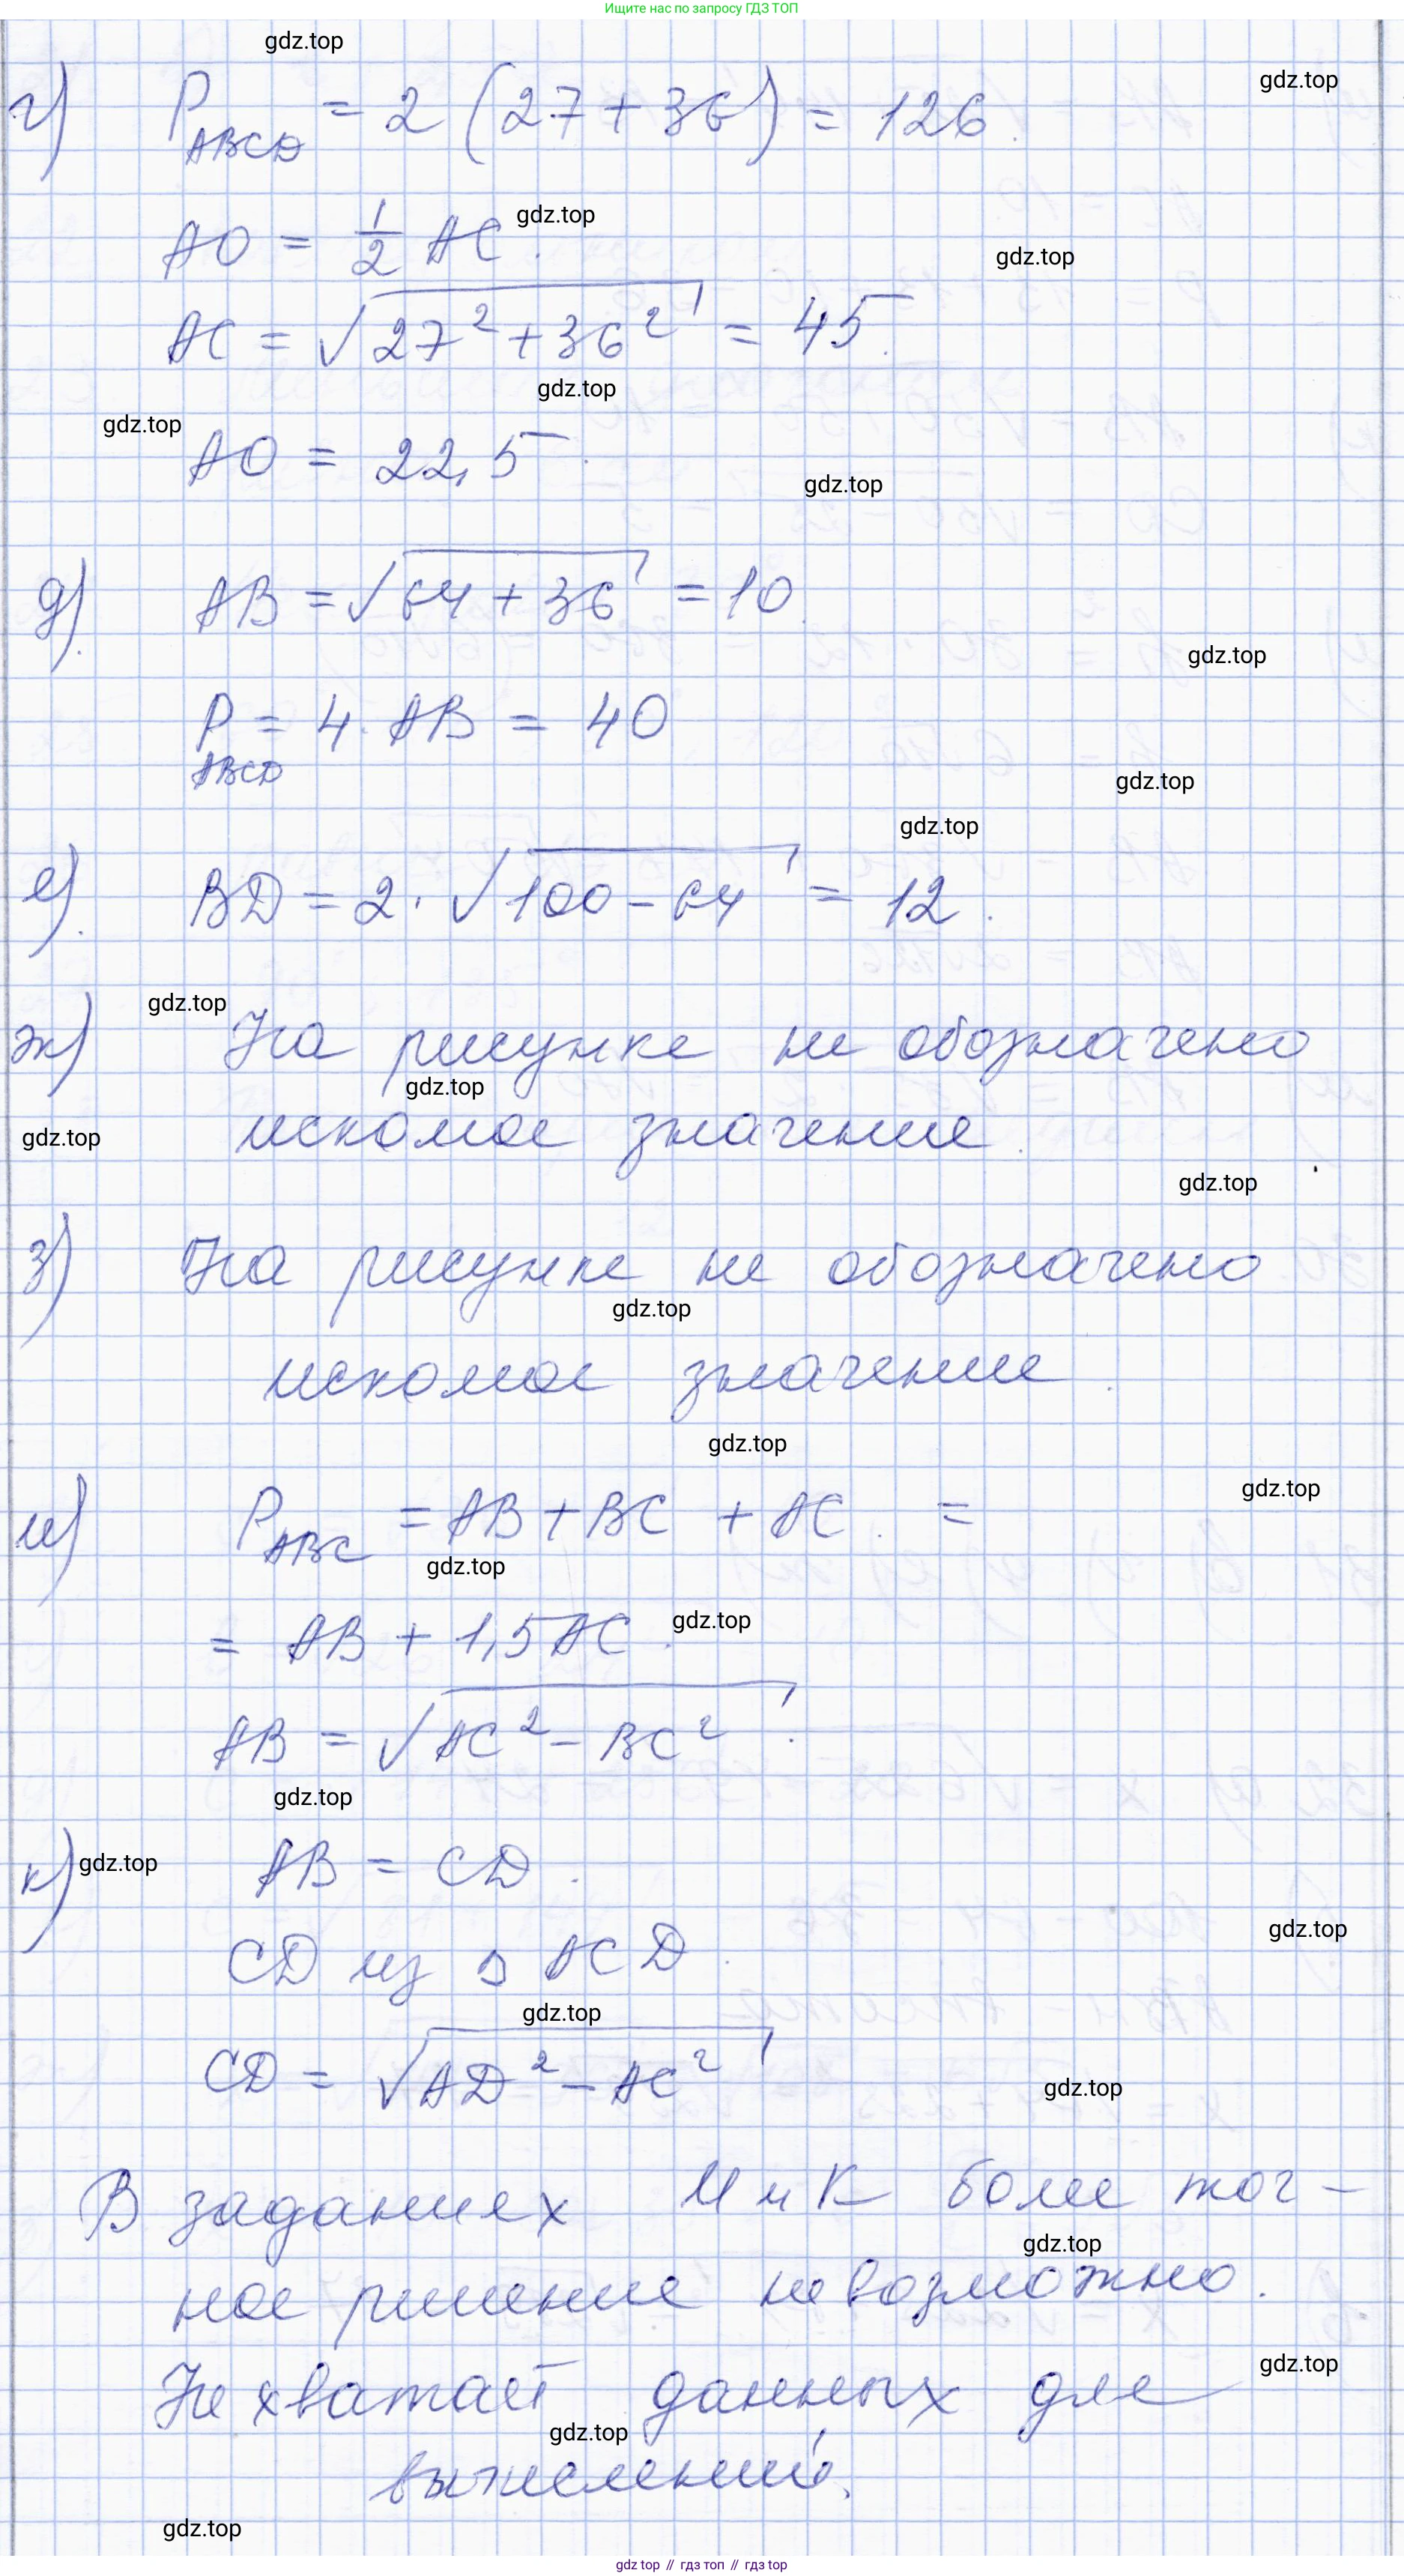 Ищите нас по запросу ГДЗ ТОП
gdz.top
gdz.top
г) P_ABCD = 2 (27 + 36) = 126.
AO = 1/2 AC.
gdz.top
gdz.top
AC = √(27² + 36²) = 45.
gdz.top
gdz.top
AO = 22,5.
gdz.top
д). AB = √(64 + 36) = 10.
gdz.top
P_ABCD = 4 · AB = 40
gdz.top
gdz.top
е). BD = 2 · √(100 - 64) = 12.
gdz.top
ж) На рисунке не обозначено
gdz.top
искомое значение.
gdz.top
gdz.top
з) На рисунке не обозначено
gdz.top
искомое значение.
gdz.top
gdz.top
и) P_ABC = AB + BC + AC. =
gdz.top
= AB + 1,5 AC.
gdz.top
AB = √(AC² - BC²).
gdz.top
к) AB = CD.
gdz.top
gdz.top
CD из Δ ACD.
gdz.top
CD = √(AD² - AC²)
gdz.top
В заданиях И и К более точ-
gdz.top
ное решение невозможно.
gdz.top
Не хватает данных для
gdz.top
вычислений.
gdz.top
gdz top // гдз топ // gdz top